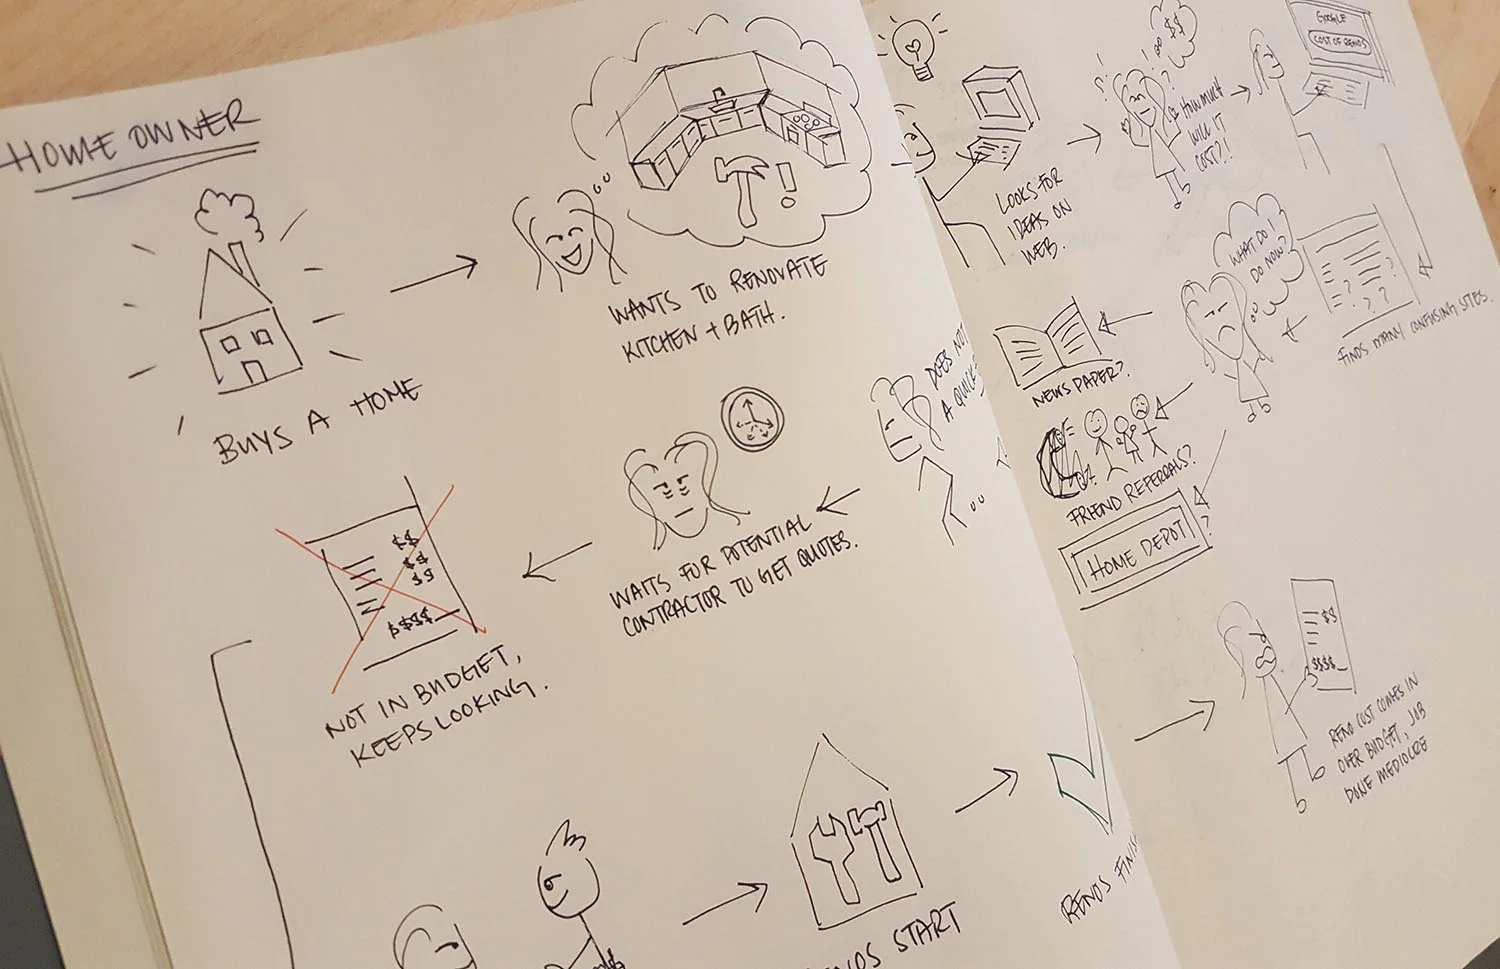 HOME OWNER
BUYS A HOME
!
WANTS TO RENOVATE
KITCHEN + BATH.
LOOKS FOR
IDEAS ON
WEB.
$$
HOW MUCH
WILL IT
COST?!
GOOGLE
COST OF RENOS
FINDS MANY CONFUSING SITES.
? ?
? ? ?
WHAT DO I
DO NOW?
NEWSPAPER?
FRIEND REFERRALS?
HOME DEPOT
?
DOES NOT
A QUICK
WAITS FOR POTENTIAL
CONTRACTOR TO GET QUOTES.
$$
$$
$$
$$$$
NOT IN BUDGET,
KEEPS LOOKING.
START
RENOS
$$
$$$$
RENO COST COMES IN
OVER BUDGET, JOB
DONE MEDIOCRE